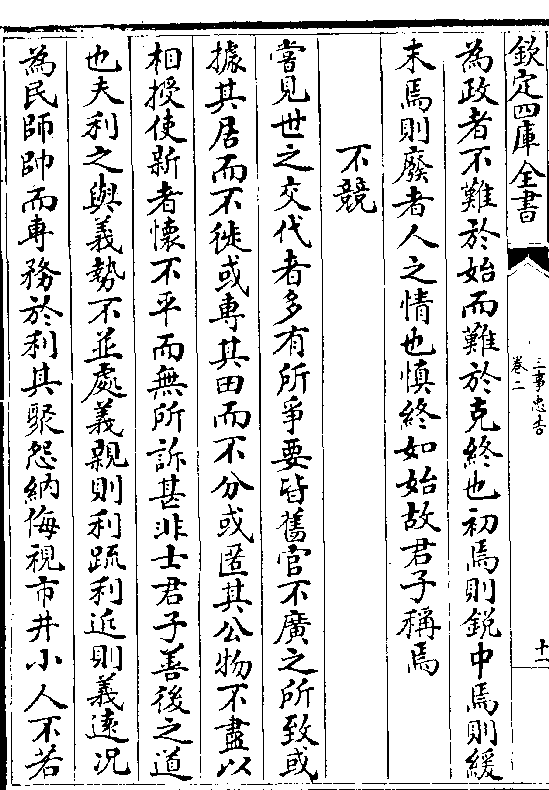 欽定四庫全書
三事忠告
卷二
十一
為政者不難於始而難於克終也初焉則鋭中焉則緩
末焉則廢者人之情也慎終如始故君子稱焉
不競
嘗見世之交代者多有所爭要皆舊官不廣之所致或
據其居而不徙或專其田而不分或匿其公物不盡以
相授使新者懷不平而無所訴甚非士君子善後之道
也夫利之與義勢不並處義親則利疏利近則義逺况
為民師帥而專務於利其聚怨納侮視市井小人不若